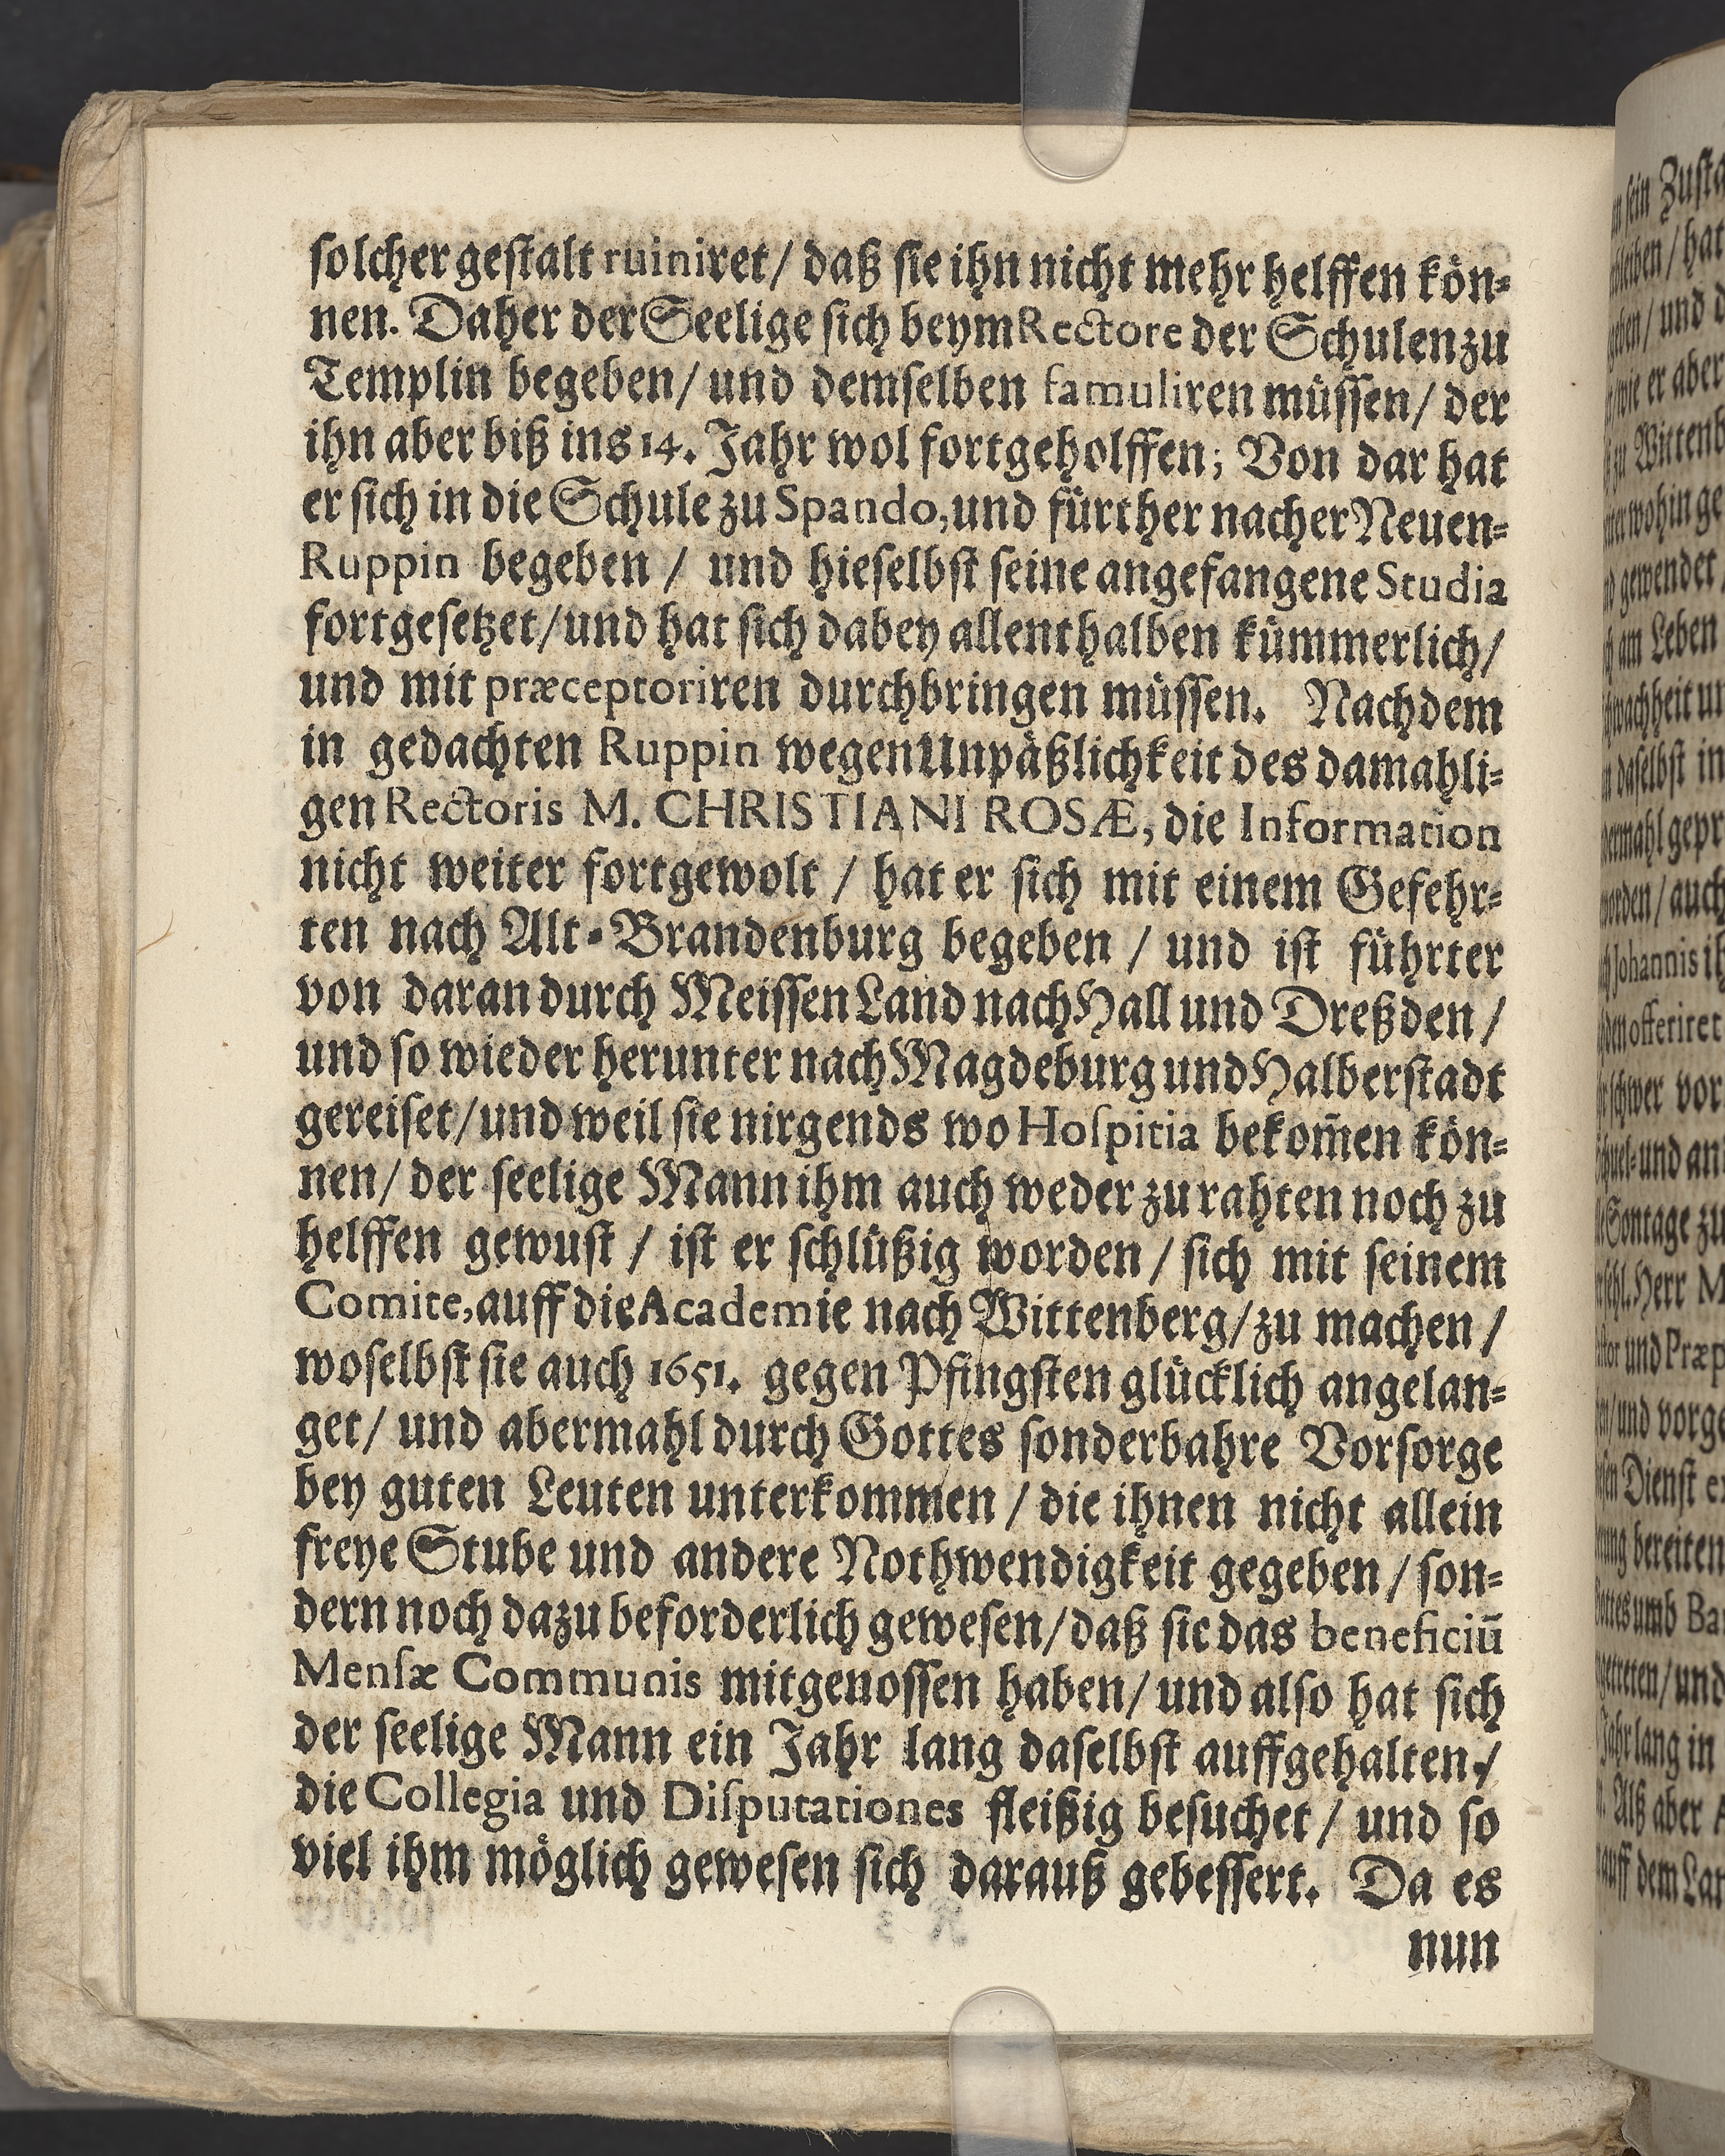 solcher gestalt ruiniret / daß sie ihn nicht mehr helffen kön-
nen. Daher der Seelige sich beym Rectore der Schulen zu
Templin begeben / und demselben famuliren müssen / der
ihn aber biß ins 14. Jahr wol fortgeholffen; Von dar hat
er sich in die Schule zu Spando, und fürther nacher Neuen-
Ruppin begeben / und hieselbst seine angefangene Studia
fortgesetzet / und hat sich dabey allenthalben kümmerlich /
und mit præceptoriren durchbringen müssen. Nachdem
in gedachten Ruppin wegen Unpäßlichkeit des damahli-
gen Rectoris M. CHRISTIANI ROSÆ, die Information
nicht weiter fortgewolt / hat er sich mit einem Gefehr-
ten nach Alt-Brandenburg begeben / und ist führter
von daran durch Meissen Land nach Hall und Dreßden /
und so wieder herunter nach Magdeburg und Halberstadt
gereiset / und weil sie nirgends wo Hospitia bekom̃en kön-
nen / der seelige Mann ihm auch weder zu rahten noch zu
helffen gewust / ist er schlüßig worden / sich mit seinem
Comite, auff die Academie nach Wittenberg / zu machen /
woselbst sie auch 1651. gegen Pfingsten glücklich angelan-
get / und abermahl durch Gottes sonderbahre Vorsorge
bey guten Leuten unterkommen / die ihnen nicht allein
freye Stube und andere Nothwendigkeit gegeben / son-
dern noch dazu beforderlich gewesen / daß sie das beneficiū
Mensæ Communis mitgenossen haben / und also hat sich
der seelige Mann ein Jahr lang daselbst auffgehalten /
die Collegia und Disputationes fleißig besuchet / und so
viel ihm möglich gewesen sich darauß gebessert. Da es
nun
sein
hat
und
er aber
gewendet
am Leben
daselbst in
auch
Johannis
offeriret
vor
und
Sontage zu
Herr
und
und
Dienst
bereiten
umb
und
lang in
Alß aber
auff dem